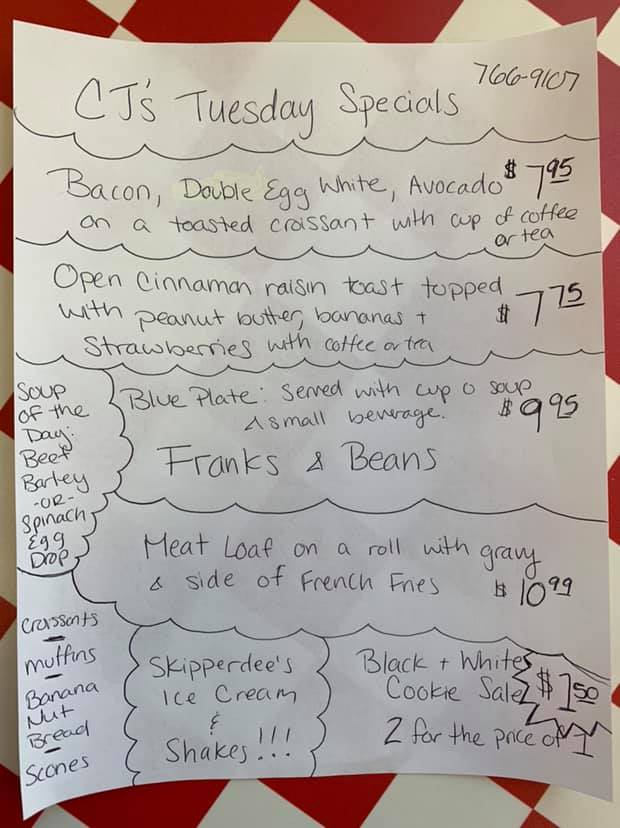 766-9107
CJ's Tuesday Specials
Bacon, Double Egg White, Avocado $7.95
on a toasted croissant with cup of coffee
or tea
Open Cinnamon raisin toast topped
with peanut butter, bananas +
Strawberries with coffee or tea
$7.75
Soup
of the
Day:
Beef
Barley
-OR-
Spinach
Egg
Drop
Blue Plate: Served with cup o soup
& small beverage.
$9.95
Franks & Beans
Meat Loaf on a roll with gravy
& side of French Fries $10.99
Croissants
-
muffins
-
Banana
Nut
Bread
-
Scones
Skipperdee's
Ice Cream
&
Shakes!!!
Black + White
Cookie Sale
$1.50
2 for the price of 1